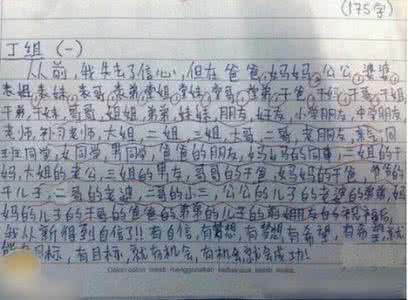 (175字)
丁组 (一)
从前,我失去了信心,但在爸爸,妈妈,公公,婆婆,
表姐,表妹,表哥,表弟,堂姐,堂妹,堂哥,堂弟,干爸,干妈,干哥,干姐,
干弟,干妹,哥哥,姐姐,弟弟,妹妹,朋友,好友,小学朋友,中学朋友,
老师,补习老师,大姐,二姐,三姐,大哥,二哥,老朋友,
班同学,女同学,男同学,爸爸的朋友,妈妈的同事,二姐的干
妈,大姐的老公,三姐的男友,哥哥的干爸,妈妈的干爸,爸爸的
干儿子,二哥的老婆,二哥的小三,公公的儿子的老婆的弟弟,妈
妈的儿子的干哥的爸爸的弟弟的儿子的前朋友的祝福后,
我从新得到自信!!有自信,有梦想,有梦想有希望,有希望,就
有目标,有目标,就有机会,有机会就会成功!